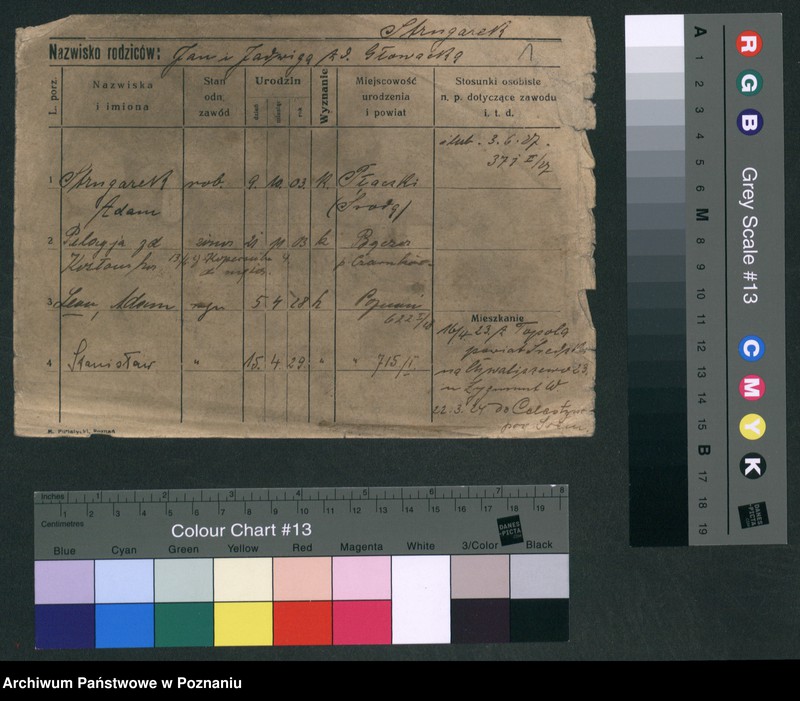 Strugarek
Nazwisko rodziców: Jan i Jadwiga z d. Głowacka
L. porz.
Nazwiska i imiona
Stan odn. zawód
Urodzin
dzień
miesiąc
rok
Wyznanie
Miejscowość urodzenia i powiat
Stosunki osobiste n. p. dotyczące zawodu i. t. d.
ślub. 3.6.27.
373 II/27
1 Strugarek rob. 9. 10. 03. k.
Adam (Środa)
2 Pelagja zd 21 11 03 k
p. Czarnków
3 Leon, Adam syn 5. 4 28 k Poznań
622 I/28
4 Stanisław " 15. 4 29. " " 715/I
Mieszkanie
16/4 23. z Topola
powiat Średzki
na Chwaliszewo 23.
u Zygmunt W
22.3.24 do Celestyn
pow. Śrem
Poznań
Archiwum Państwowe w Poznaniu
Inches 1 2 3 4 5 6 7 8
Centimetres 1 2 3 4 5 6 7 8 9 10 11 12 13 14 15 16 17 18 19
Colour Chart #13
DANES PICTA .COM
Blue Cyan Green Yellow Red Magenta White 3/Color Black
Grey Scale #13
R G B C M Y K
A 1 2 3 4 5 6 M 8 9 10 11 12 13 14 15 B 17 18 19
DANES PICTA .COM